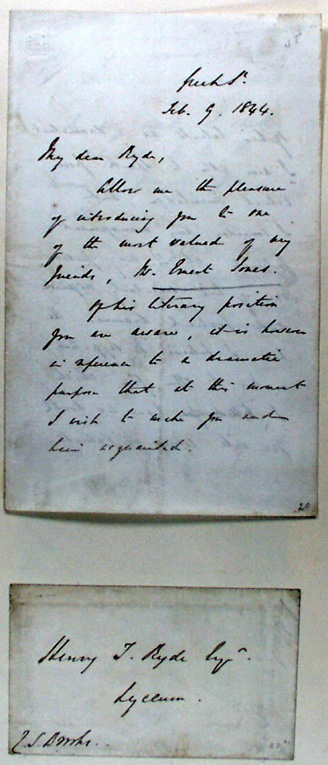 Greek St.
Feb. 9. 1844.
My dear Ryde,
Allow me the pleasure
of introducing you to one
of the most valued of my
friends, Mr. Ernest Jones.
Of his literary position
you are aware, it is however
in reference to a dramatic
purpose that at this moment
I wish to make you and
him acquainted.
Henry T. Ryde Esqre.
Lyceum.